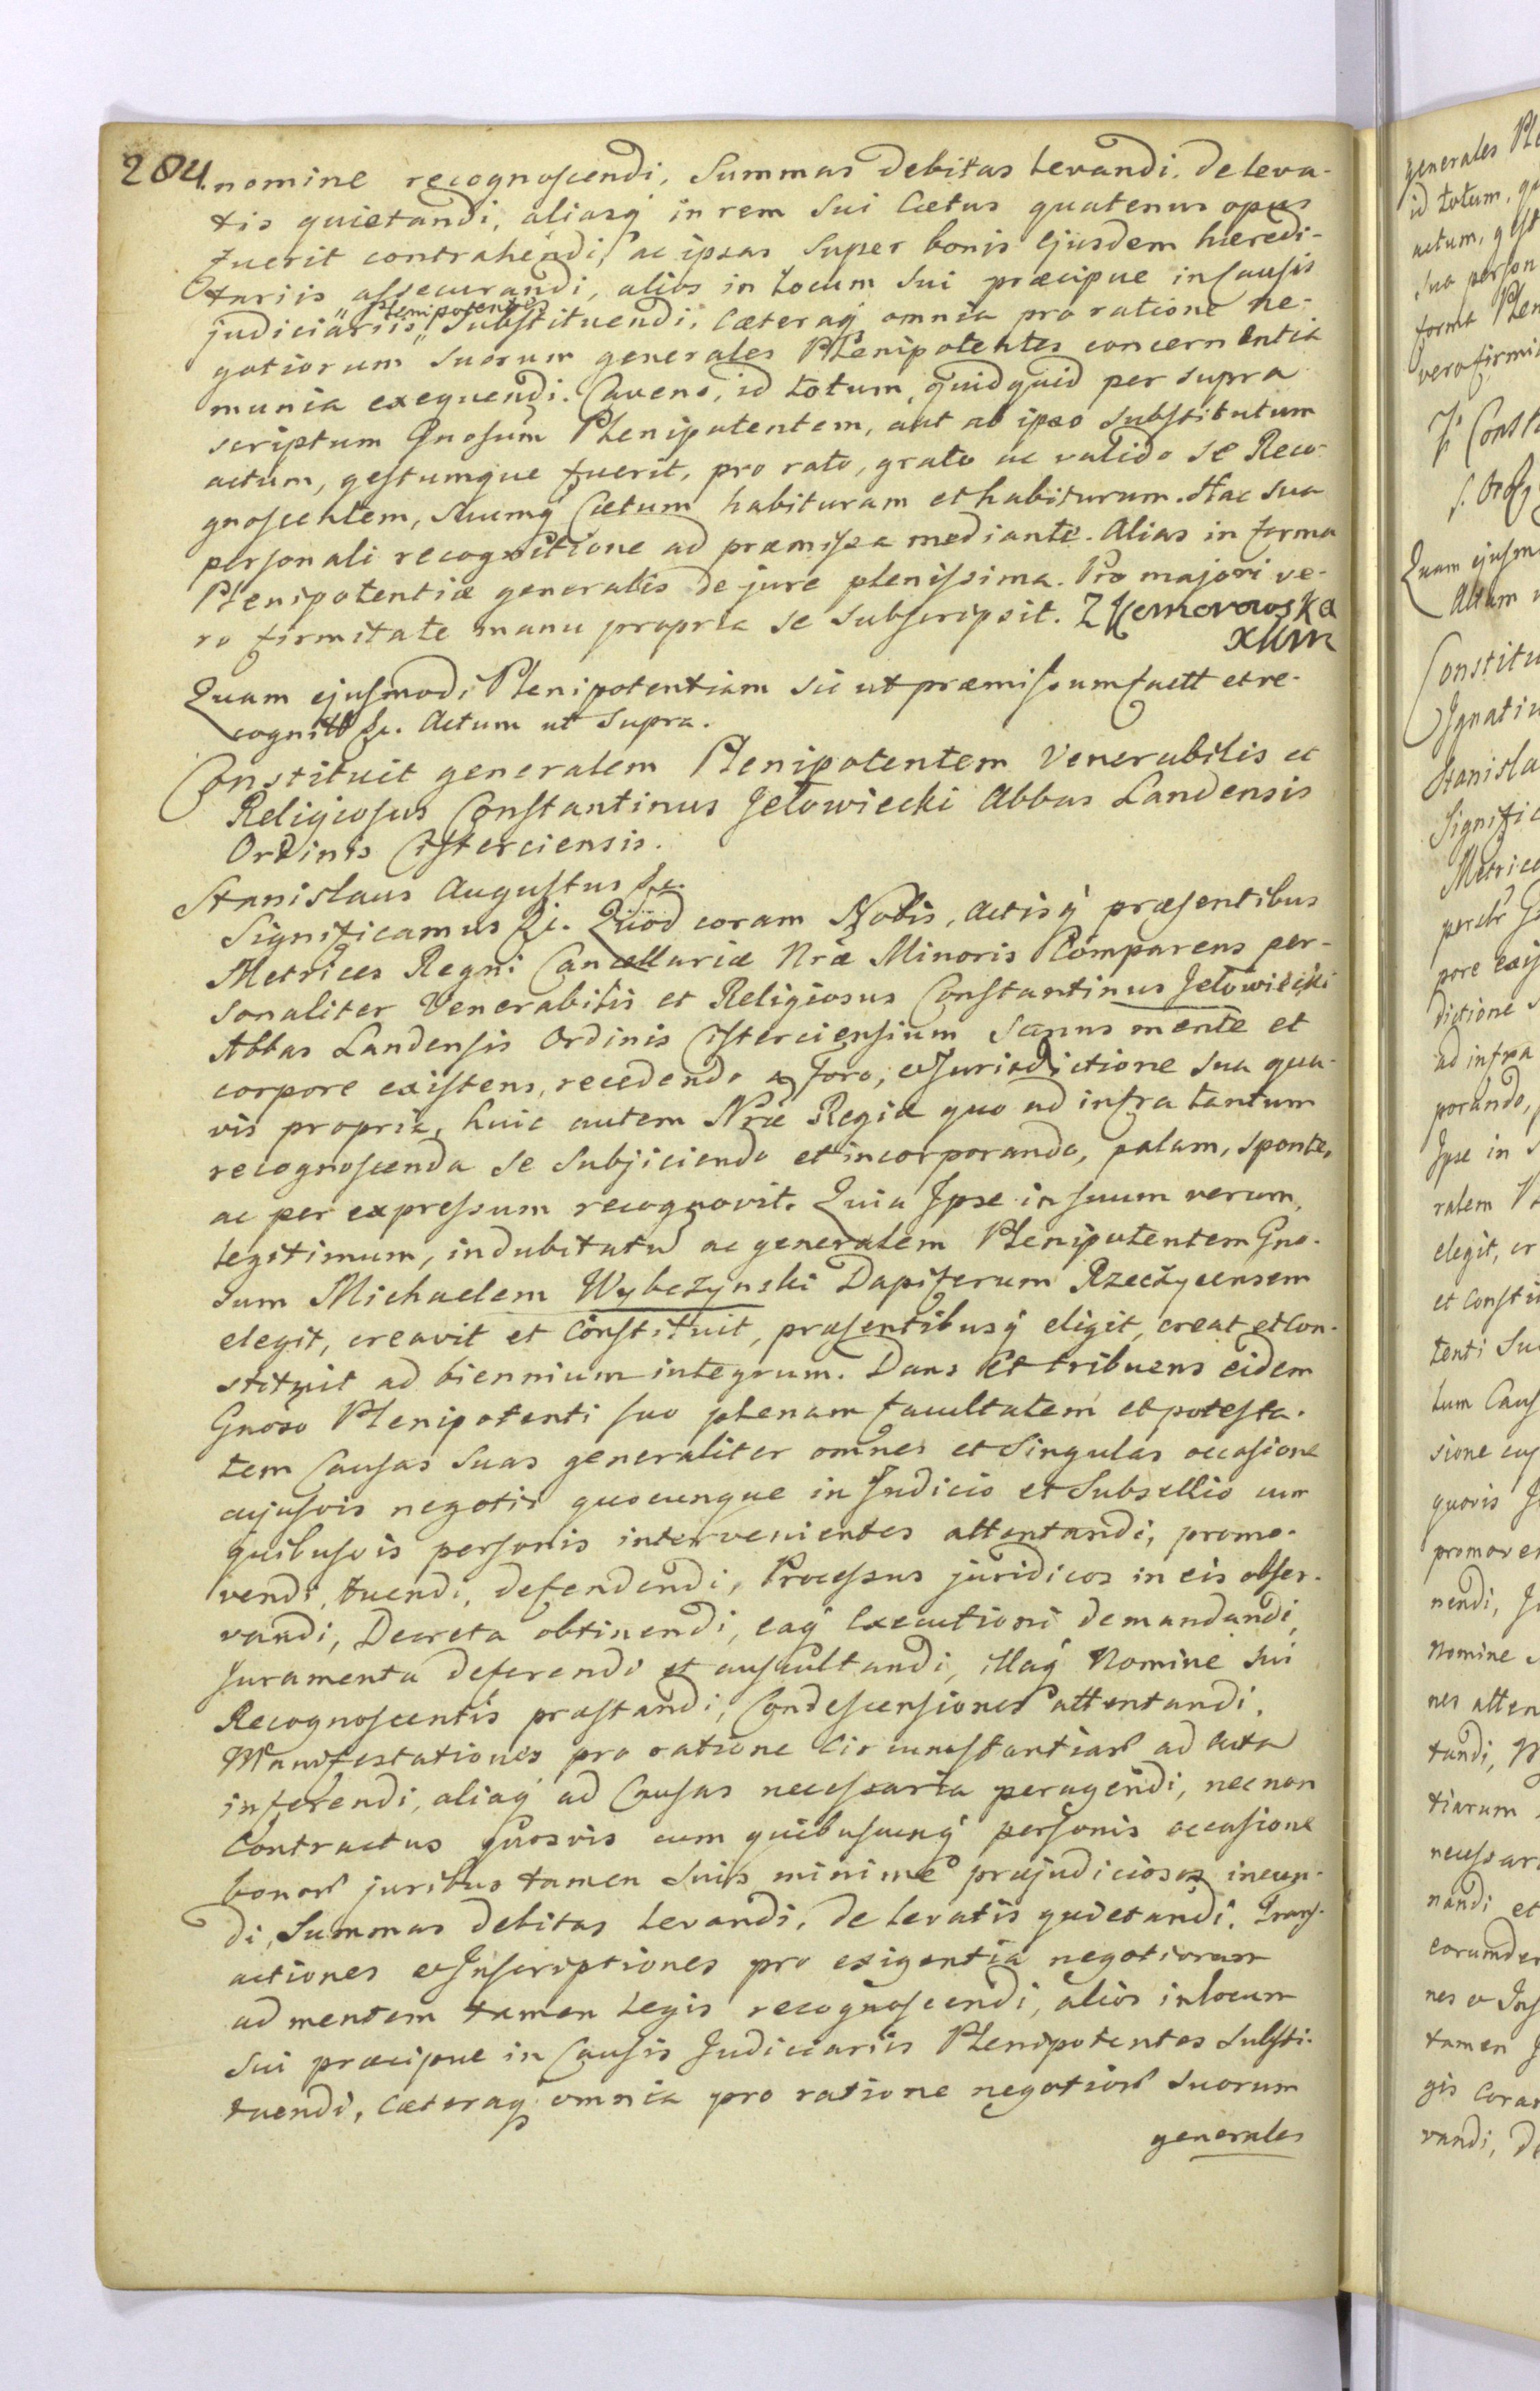 204. nomine recognoscendi, Summas debitas levandi, de leva-
tis quietandi, aliasq́ in rem sui Cœtus quatenus opus
fuerit contrahendi, ac ipsas super bonis ejusdem hæredi-
tariis assecurandi, alios in locum sui præcipue in Causis
Plenipotentes
judiciariis " substituendi, Cæteraq́ omnia pro ratione ne-
gotiorum suorum generales Plenipotentes concernentia
munia exequendi. Cavens, id totum, quidquid per supra
scriptum Gnosum Plenipotentem, aut ab ipso substitutum
actum, gestumque fuerit, pro rato, grato ac valido se Reco-
gnoscentem, suumq́ Cœtum habituram et habiturum. Hac sua
personali recognitione ad præmissa mediante. Alias in forma
Plenipotentiæ generalis de jure plenissima. Pro majori ve-
ro firmitate manu propria se subscripsit. Z Komorowska
Quam ejusmodi Plenipotentiam sic ut præmissum facit et re-
cognitt &c. Actum ut supra.
Constituit generalem Plenipotentem Venerabilis et
Religiosus Constantinus Jełowiecki Abbas Landensis
Ordinis Cisterciensis.
Stanislaus Augustus &c.
Significamus &c. Quod coram Nobis, Actisq́ præsentibus
Metrices Regni Cancellariæ Nræ Minoris Comparens per-
sonaliter Venerabilis et Religiosus Constantinus Jełowiecki
Abbas Landensis Ordinis Cisterciensium sanus mente et
corpore existens, recedendo a Foro, et Jurisdictione sua qua-
vis propria, huic autem Nræ Regiæ quo ad infra tantum
recognoscenda se subjiciendo et incorporando, palam, sponte,
ac per expressum recognovit. Quia Ipse in suum verum,
legitimum, indubitatu ac generalem Plenipotentem Gno-
sum Michaelem Wybczynski Dapiferum Rzeczycensem
elegit, creavit et Constituit, præsentibusq́ eligit, creat et Con-
stituit ad biennium integrum. Dans et tribuens eidem
Gnoso Plenipotenti suo plenam facultatem et potesta-
tem Causas suas generaliter omnes et singulas occasione
cujusvis negotii quocunque in Judicio et Subsellio cum
quibusvis personis intervenientes attentandi, promo-
vendi, tuendi, defendendi, Processus juridicos in eis obser-
vandi, Decreta obtinendi, eaq́ Executioni demandandi,
Juramenta deferendi et auscultandi, illaq́ Nomine sui
Recognoscentis præstandi, Condescensiones attentandi,
Manifestationes pro ratione Circumstantiar ad Acta
inferendi, aliaq́ ad Causas necessaria peragendi, nec non
Contractus quosvis cum quibuscunq́ personis occasione
bonor juribus tamen suis minime præjudiciosos ineun-
di, Summas debitas levandi, de levatis quietandi, Trans-
actiones et Inscriptiones pro exigentia negotiorum
ad mentem tamen Legis recognoscendi, alios in locum
sui præcipue in Causis Judiciariis Plenipotentes substi-
tuendi, Cæteraq́ omnia pro ratione negotior suorum
generales